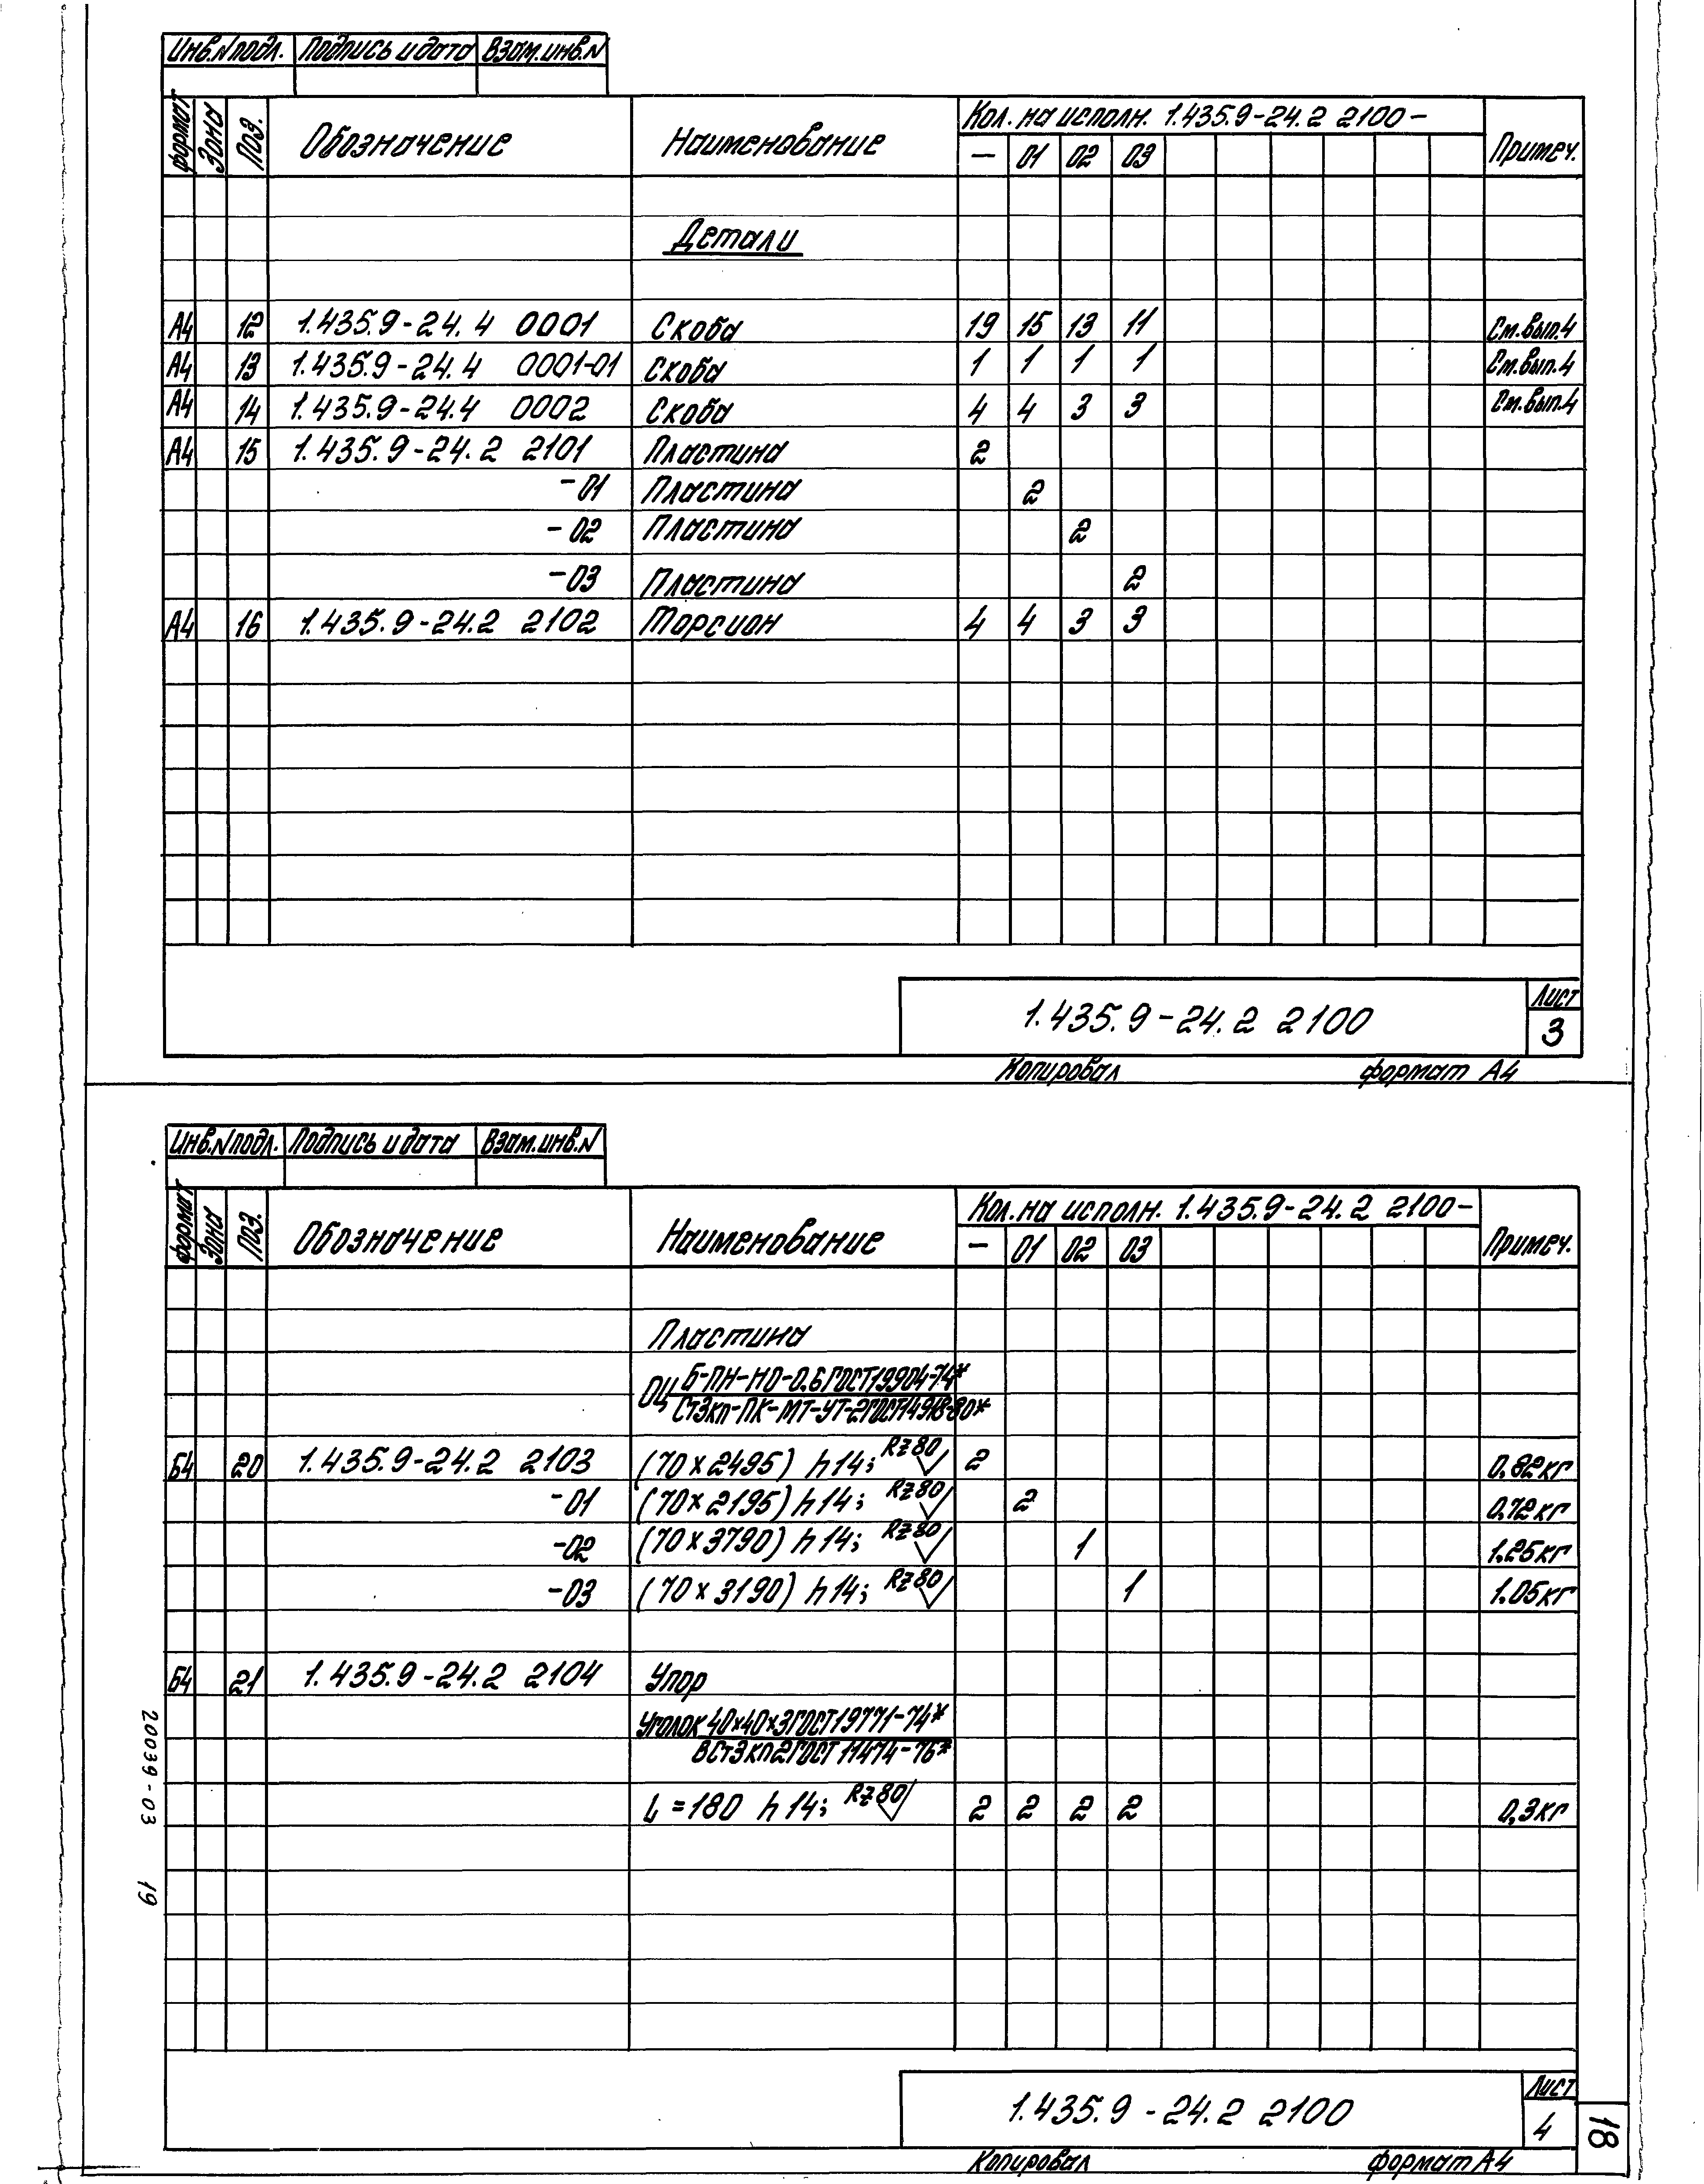 Инв.N подл. Подпись и дата Взам.инв.N
формат Зона Поз. Обозначение Наименование Кол. на исполн. 1.435.9-24.2 2100- Примеч.
— 01 02 03
Детали
А4 12 1.435.9-24.4 0001 Скоба 19 15 13 11 См.вып.4
А4 13 1.435.9-24.4 0001-01 Скоба 1 1 1 1 См.вып.4
А4 14 1.435.9-24.4 0002 Скоба 4 4 3 3 См.вып.4
А4 15 1.435.9-24.2 2101 Пластина 2
-01 Пластина 2
-02 Пластина 2
-03 Пластина 2
А4 16 1.435.9-24.2 2102 Торсион 4 4 3 3
1.435.9-24.2 2100 Лист
3
Копировал формат А4
Инв.N подл. Подпись и дата Взам.инв.N
формат Зона Поз. Обозначение Наименование Кол. на исполн. 1.435.9-24.2 2100- Примеч.
— 01 02 03
Пластина
ОЦ Б-ПН-НО-0.6 ГОСТ19904-74*
Ст3кп-ПК-МТ-УТ-2ГОСТ14918-80*
Б4 20 1.435.9-24.2 2103 (70×2495) h14; Rz80 2 0,82кг
-01 (70×2195) h14; Rz80 2 0,72кг
-02 (70×3790) h14; Rz80 1 1.25кг
-03 (70×3190) h14; Rz80 1 1.05кг
Б4 21 1.435.9-24.2 2104 Упор
Уголок 40×40×3 ГОСТ19771-74*
ВСт3кп2 ГОСТ 11474-76*
L=180 h14; Rz80 2 2 2 2 0,3кг
1.435.9-24.2 2100 Лист
4
Копировал формат А4
20039-03 19
18